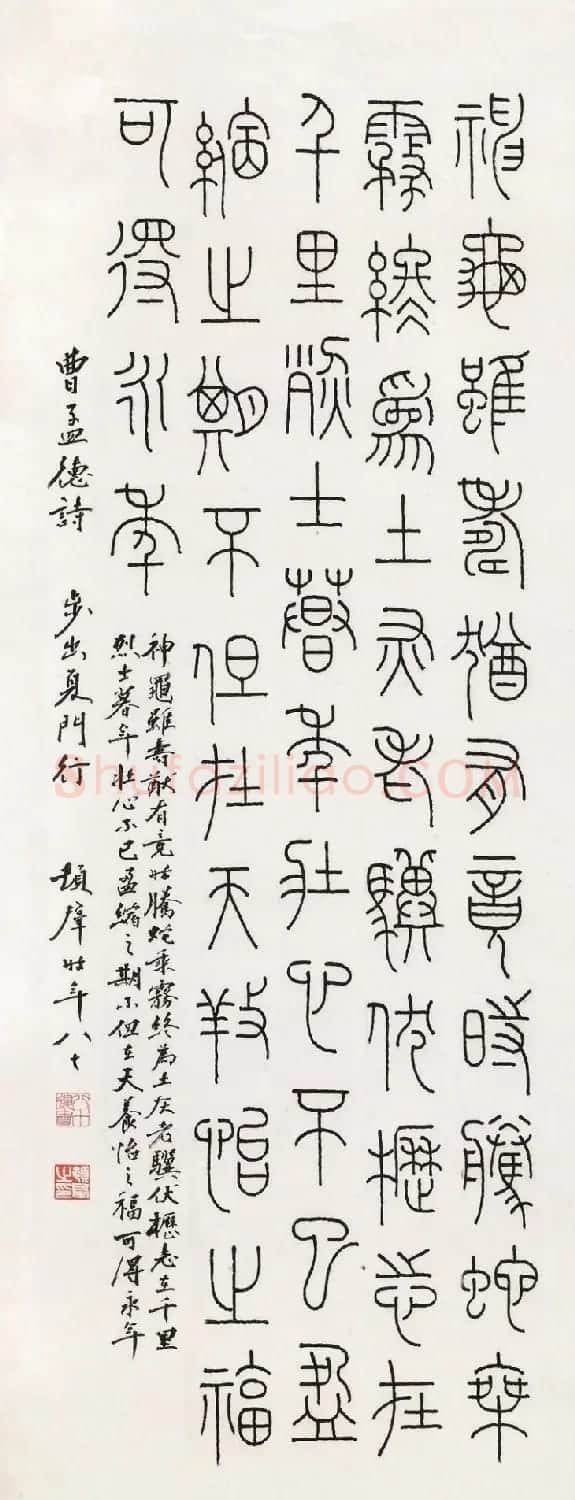 神龜雖壽猶有竟時騰蛇乘
霧終為土灰老驥伏櫪志在
千里烈士暮年壯心不已盈
縮之期不但在天養怡之福
可得永年
神龜雖壽猷有竟時騰蛇乘霧終為土灰老驥伏櫪志在千里
烈士暮年壯心不已盈縮之期不但在天養怡之福可得永年
曹孟德詩 步出夏門行 時年八十
Shufaziliao.COM